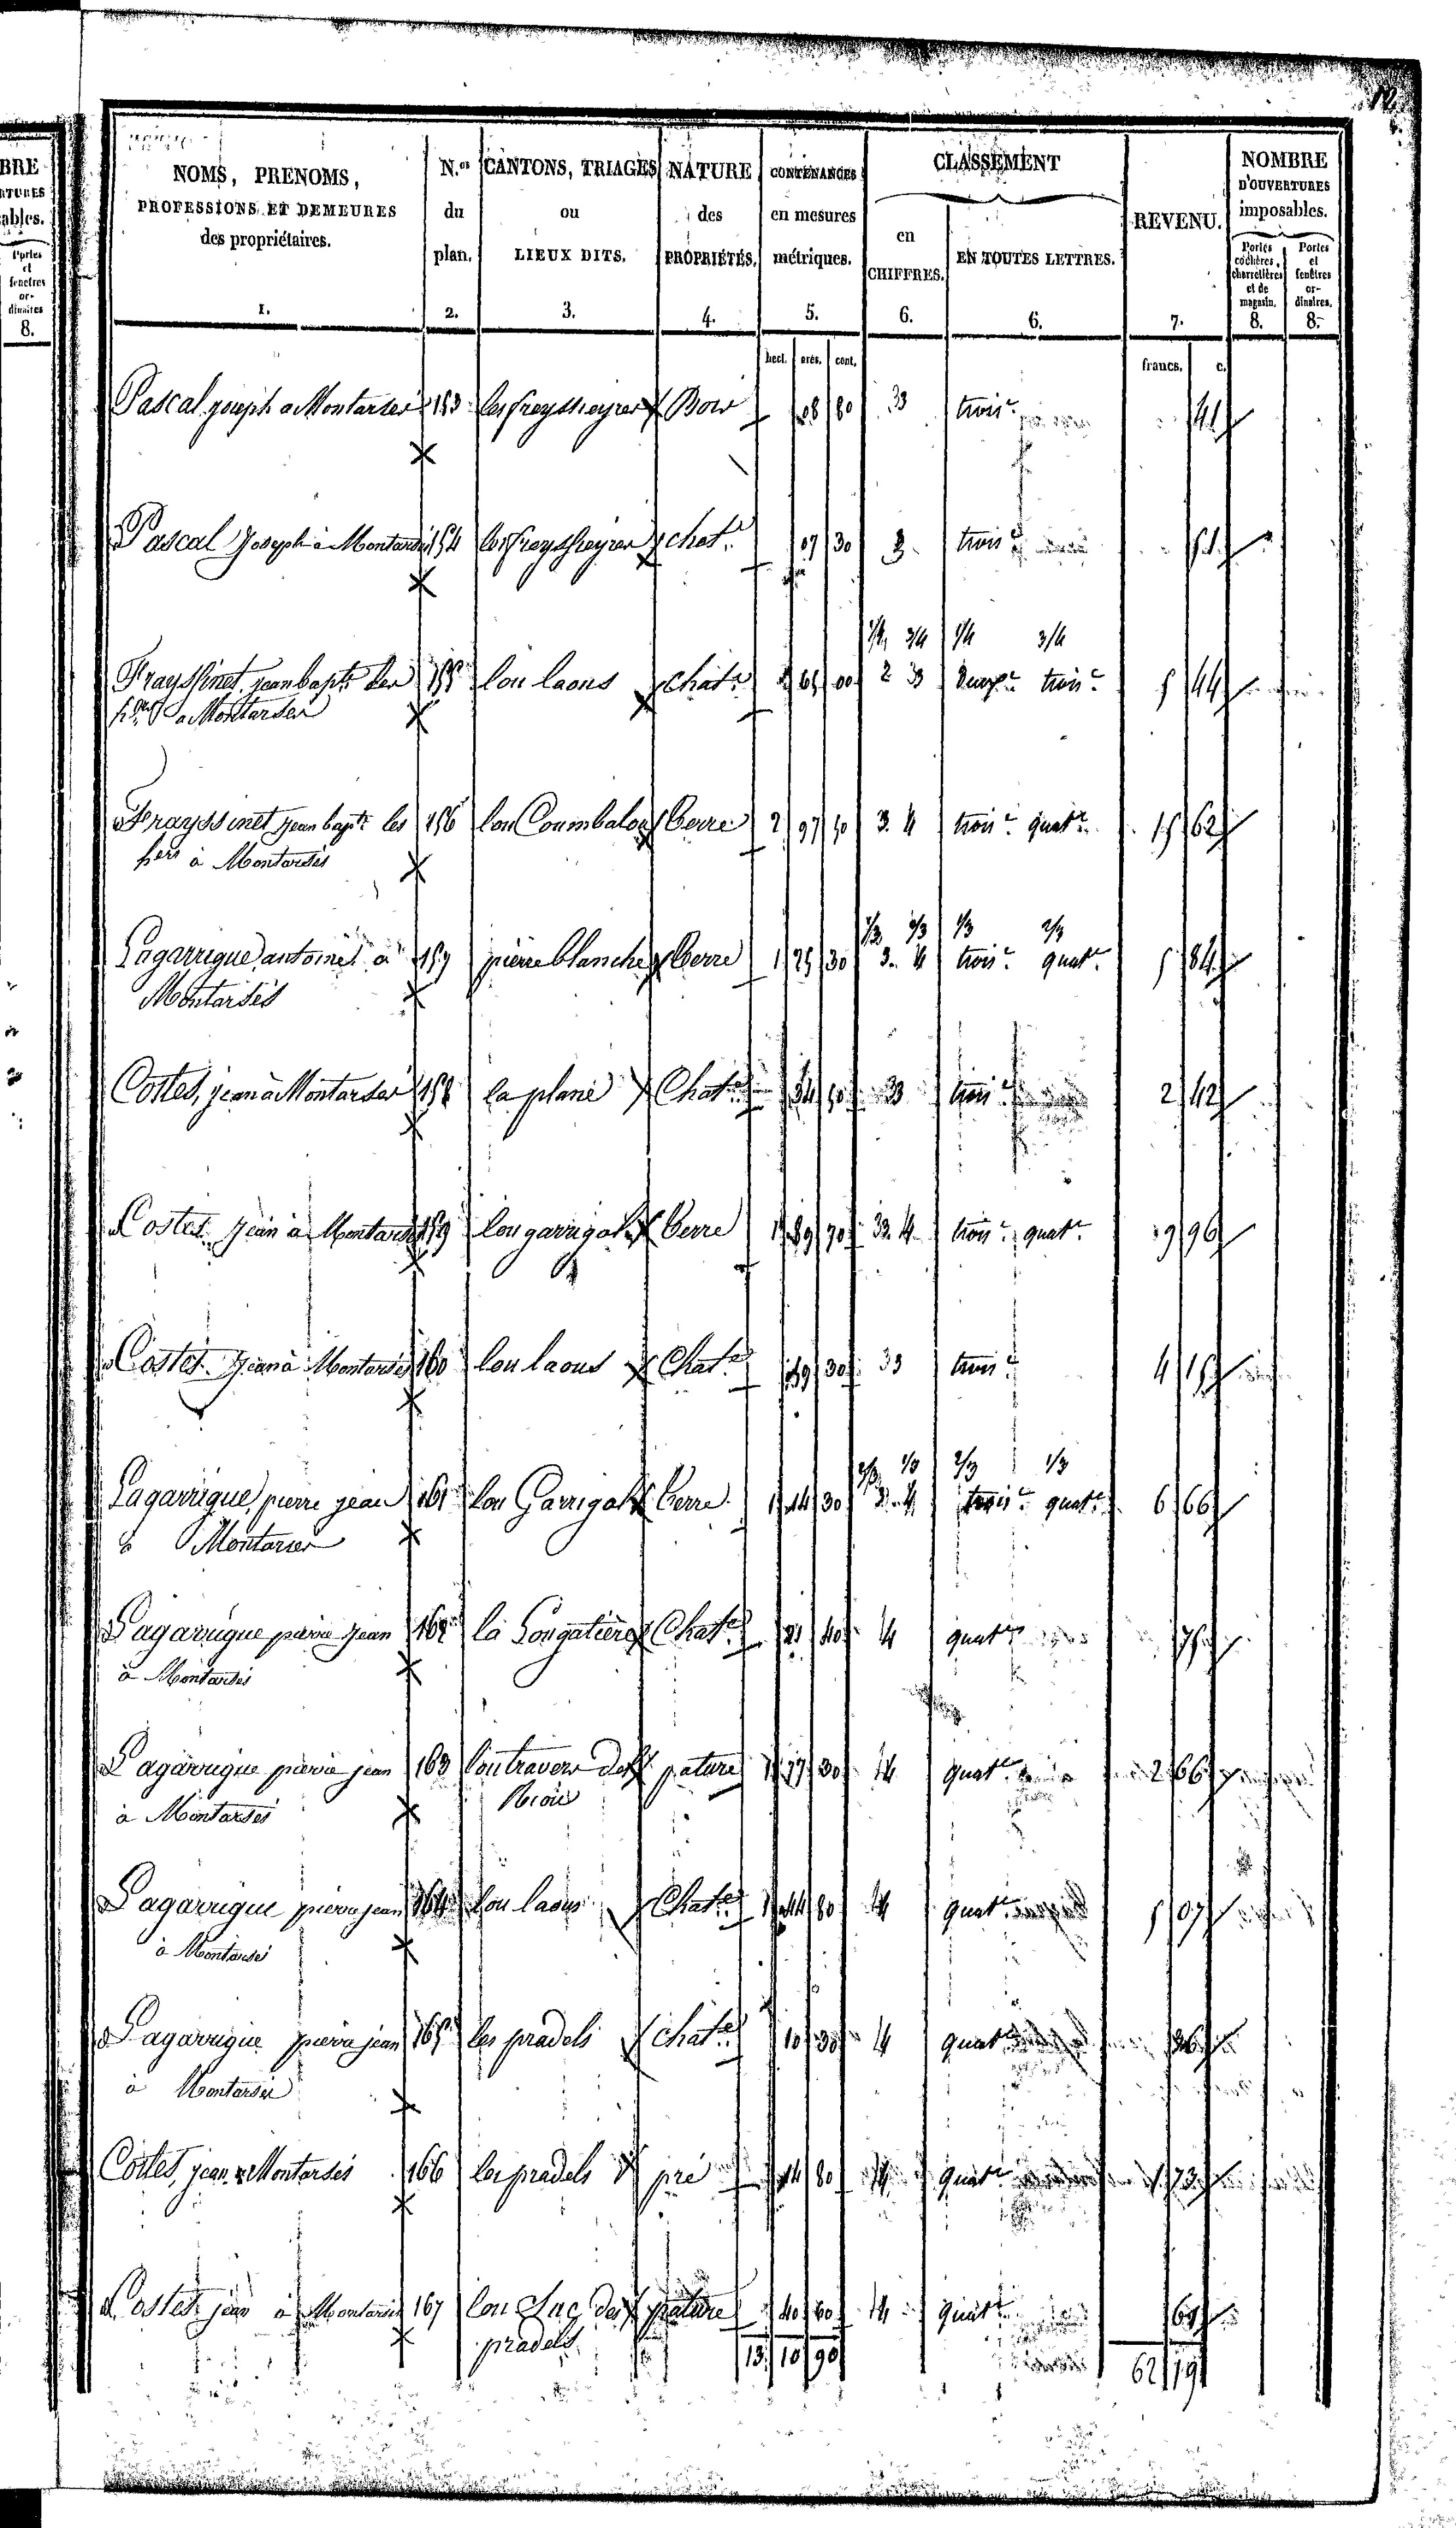 12
BRE
RTURES
ables.
Portes
et
fenêtres
or-
dinaires
8.
NOMS, PRENOMS,
PROFESSIONS ET DEMEURES
des propriétaires.
1.
N.os
du
plan.
2.
CANTONS, TRIAGES
ou
LIEUX DITS.
3.
NATURE
des
PROPRIÉTÉS.
4.
CONTENANCES
en mesures
métriques.
5.
CLASSEMENT
en
CHIFFRES.
6.
EN TOUTES LETTRES.
6.
REVENU.
7.
NOMBRE
D'OUVERTURES
imposables.
Portes
cochères,
charretières
et de
magasin.
8.
Portes
et
fenêtres
or-
dinaires.
8.
hect. ares. cent. francs. c.
Pascal joseph a Montarsés 153 Bois 08 80 3 trois.e 41
Pascal Joseph à Montarsés 154 chat.e 07 30 3 trois.e 51
1/4 3/4 1/4 3/4
Frayssinet, jean bapt.e les 155 lou laous chat.e 65 00 2 3 deux.e trois.e 5 44
h.ers a Montarsés
Frayssinet jean bapt.e les 156 lou Coumbalou terre 2 97 50 3. 4 trois.e quat.e 15 62
hers à Montarsés
1/3 2/3 1/3 2/3
Lagarrigue, antoine à 157 pierre blanche terre 1 25 30 3. 4 trois.e quat.e 5 84
Montarsés
Costes, jean à Montarsés 158 la plane Chat.e 34 50 3 trois.e 2 42
Costes jean à Montarsés 159 lou garrigal terre 1 89 70 3. 4 trois.e quat.e 9 96
Costes jean à Montarsés 160 lou laous Chat.e 59 30 3 trois.e 4 15
2/3 1/3 2/3 1/3
Lagarrigue, pierre jean 161 lou Garrigal terre 1 14 30 3. 4 trois.e quat.e 6 66
à Montarsés
Lagarrigue pierre jean 162 la Longatière Chat.e 21 40 4 quat.e 75
à Montarsés
Lagarrigue pierre jean 163 lou travers del pature 1 77 30 4 quat.e 2 66
à Montarsés Riou
Lagarrigue pierre jean 164 lou laous Chat.e 1 44 80 4 quat.e 5 07
à Montarsés
Lagarrigue pierre jean 165 les pradels chat.e 10 30 4 quat.e 36
à Montarsés
Costes, jean a Montarsés 166 les pradels pré 14 80 4 quat.e 1 73
Costes jean à Montarsés 167 lou Suc des pature 40 60 4 quat.e 61
pradels
13 10 90 62 19